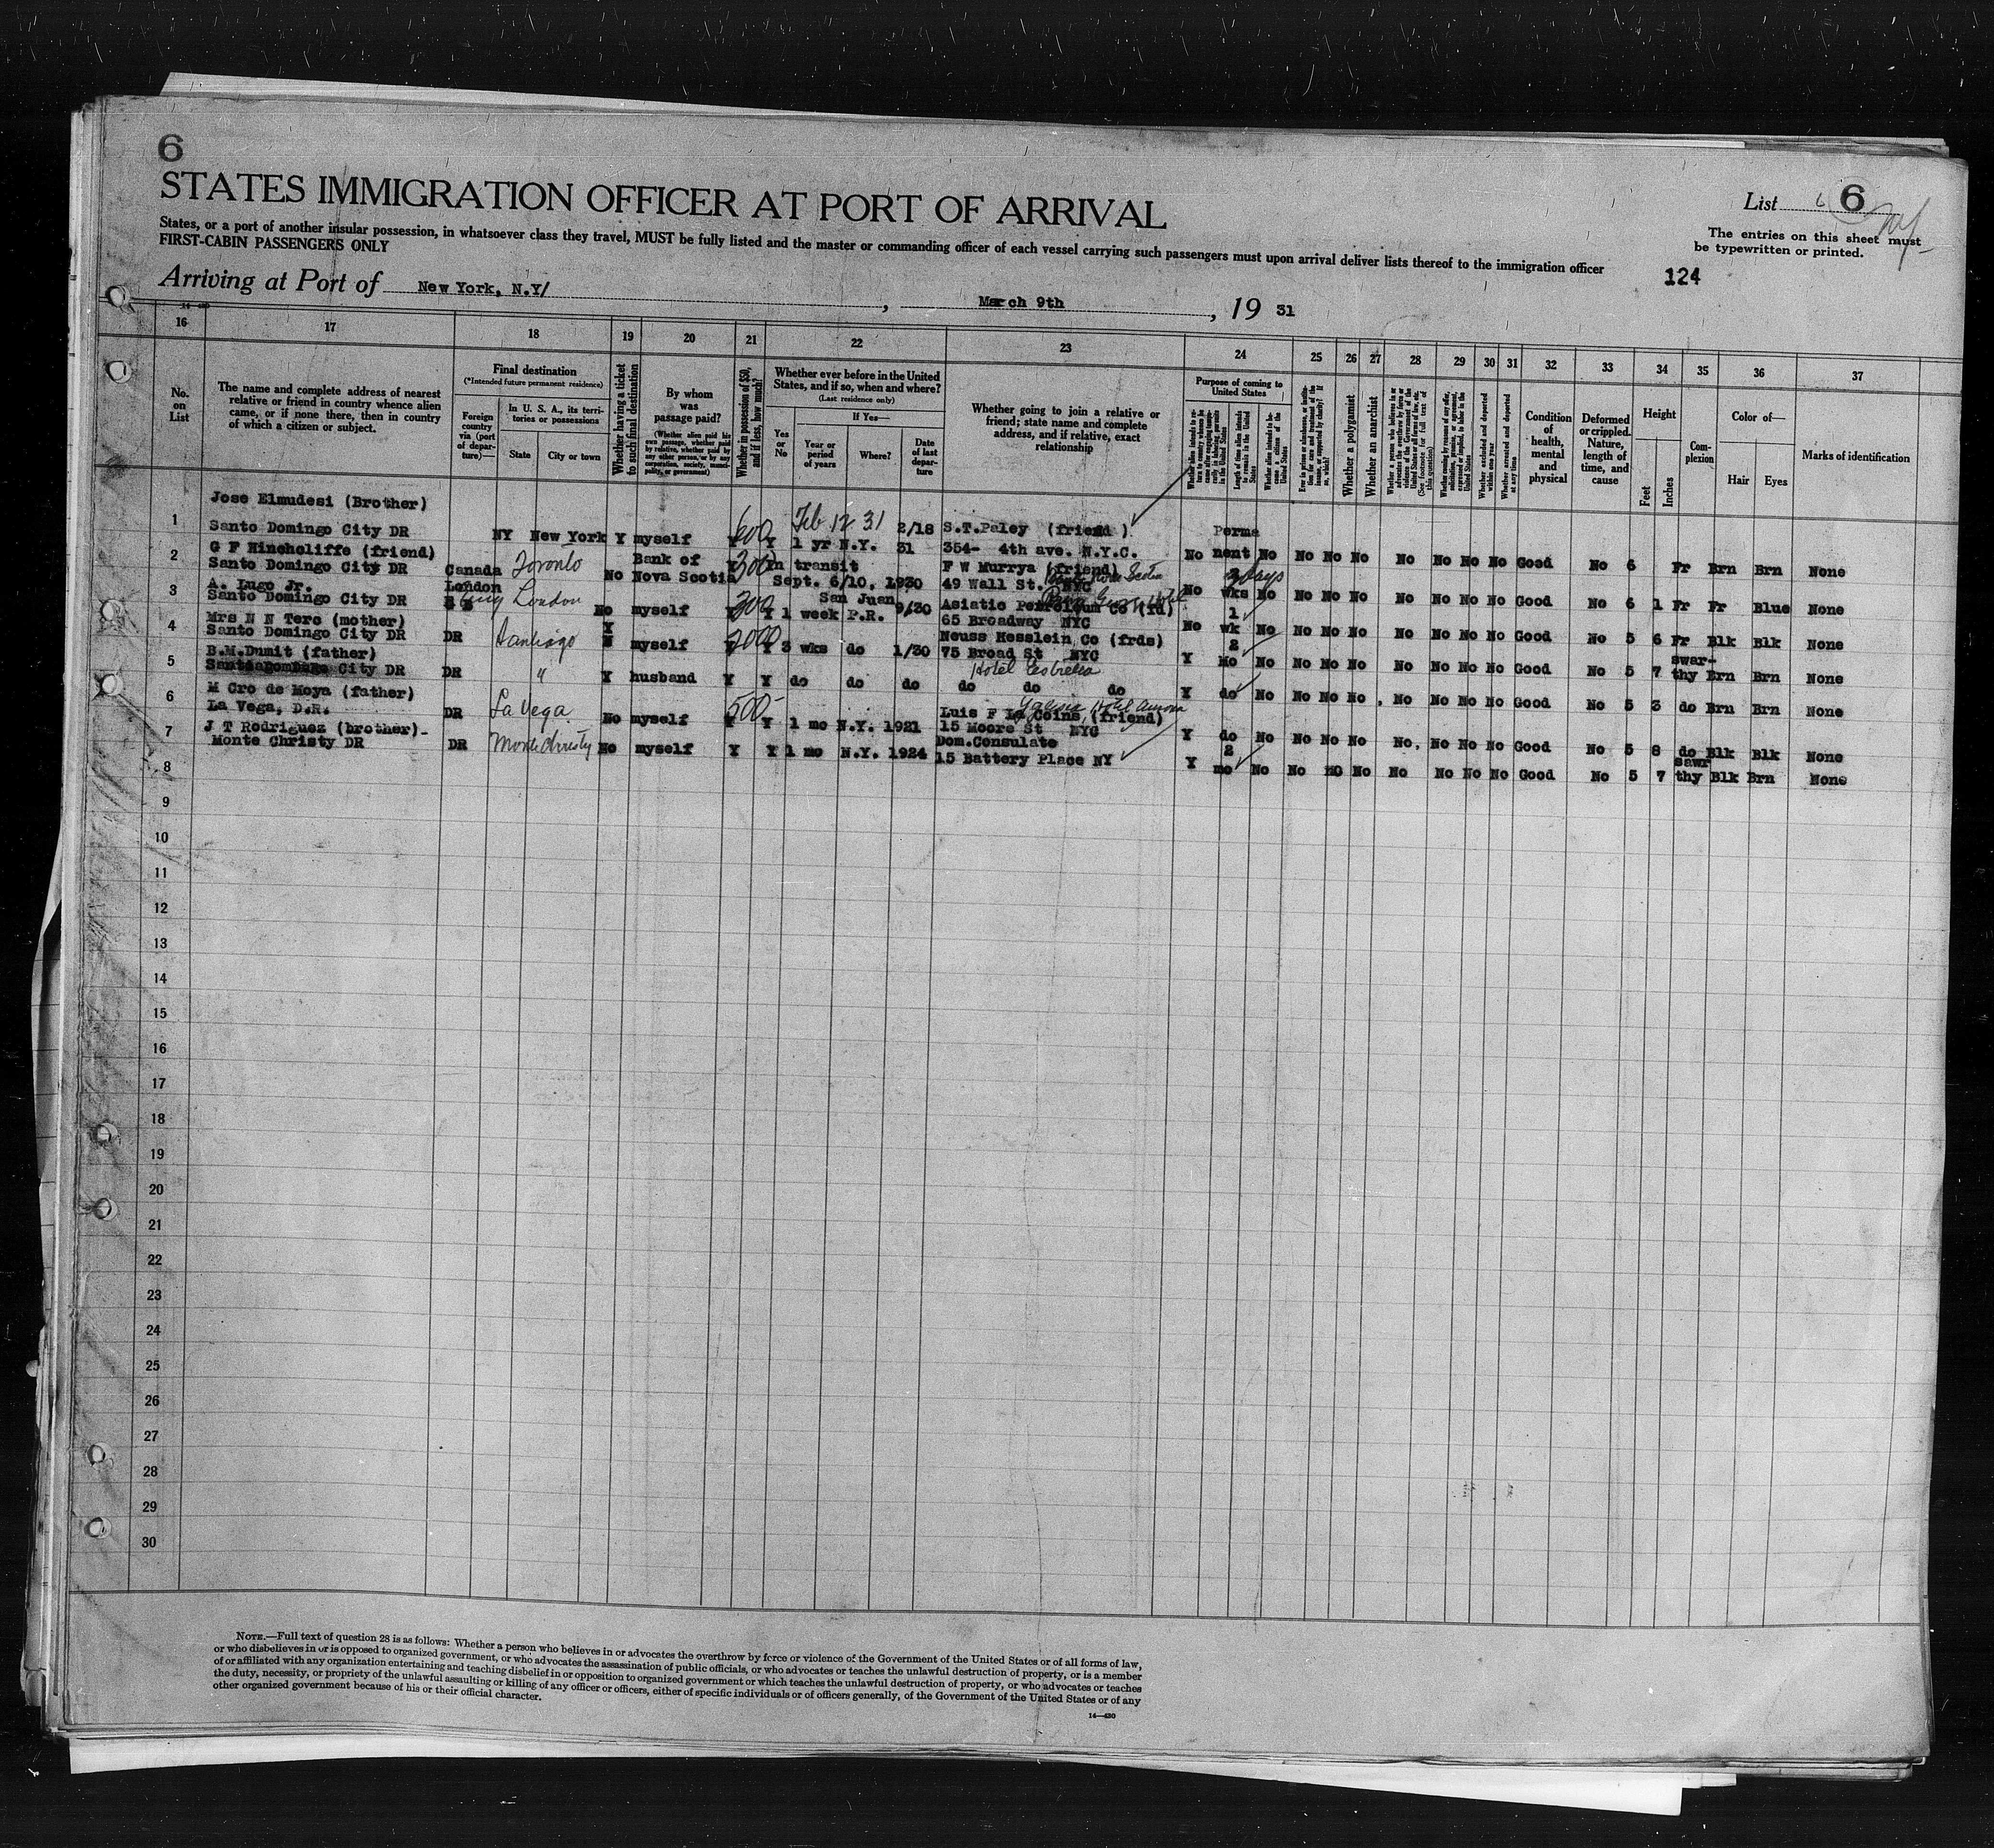 6
STATES IMMIGRATION OFFICER AT PORT OF ARRIVAL
List 6 6
States, or a port of another insular possession, in whatsoever class they travel, MUST be fully listed and the master or commanding officer of each vessel carrying such passengers must upon arrival deliver lists thereof to the immigration officer
FIRST-CABIN PASSENGERS ONLY
The entries on this sheet must
be typewritten or printed.
124
Arriving at Port of New York, N.Y/ , March 9th , 19 31
16 17 18 19 20 21 22 23 24 25 26 27 28 29 30 31 32 33 34 35 36 37
No. on List
The name and complete address of nearest
relative or friend in country whence alien
came, or if none there, then in country
of which a citizen or subject.
Final destination
(*Intended future permanent residence)
Foreign country via (port of departure)—
In U. S. A., its territories or possessions
State
City or town
Whether having a ticket to such final destination
By whom was passage paid?
(Whether alien paid his own passage, whether paid by relative, whether paid by any other person, or by any corporation, society, municipality, or government)
Whether in possession of $50, and if less, how much?
Whether ever before in the United
States, and if so, when and where?
(Last residence only)
Yes or No
If Yes—
Year or period of years
Where?
Date of last departure
Whether going to join a relative or
friend; state name and complete
address, and if relative, exact
relationship
Purpose of coming to
United States
Length of time alien intends to remain in the United States
Whether alien intends to become a citizen of the United States
Whether a polygamist
Whether an anarchist
Whether excluded and deported within one year
Whether arrested and deported at any time
Condition of health, mental and physical
Deformed or crippled. Nature, length of time, and cause
Height
Feet
Inches
Complexion
Color of—
Hair
Eyes
Marks of identification
Jose Elmudesi (Brother)
1 Santo Domingo City DR NY New York Y myself 600 Y Feb 12 31 1 yr N.Y. 2/18 31 S.T.Paley (friend) 354- 4th ave. N.Y.C. No Permanent No No No No No No No No Good No 6 Fr Brn Brn None
2 G F Hinchcliffe (friend)
Santo Domingo City DR Canada Toronto No Bank of Nova Scotia 300 in transit Sept. 6/10, 1930 F W Murrya (friend) Bank Nova Scotia 49 Wall St. NYC No days wks No No No No No No No No Good No 6 1 Fr Fr Blue None
3 A. Lugo Jr.
Santo Domingo City DR London Eng London No myself 200 Y 1 week San Juan P.R. 9/30 Asiatic Petroleum Co (fd) 65 Broadway NYC No 1 wk No No No No No No No No Good No 5 6 Fr Blk Blk None
4 Mrs N N Tero (mother)
Santo Domingo City DR DR Santiago Y myself 2000 Y 3 wks do 1/30 Neuss Hesslein Co (frds) 75 Broad St NYC Y 2 Mo No No No No No No No No Good No 5 7 swarthy Brn Brn None
5 B.M.Dumit (father)
City DR DR " Y husband Y Y do do do do do do Hotel Estrella Y do No No No No No No No No Good No 5 3 do Brn Brn None
6 M Cro de Moya (father)
La Vega, D.R. DR La Vega No myself 500 Y 1 mo N.Y. 1921 Luis F (friend) 15 Moore St NYC Y do No No No No No. No No No Good No 5 8 do Blk Blk None
7 J T Rodriguez (brother)
Monte Christy DR DR Monte Christy No myself Y Y 1 mo N.Y. 1924 Dom.Consulate 15 Battery Place NY Y 2 mo No No NO No No No No No Good No 5 7 sawrthy Blk Brn None
8
9
10
11
12
13
14
15
16
17
18
19
20
21
22
23
24
25
26
27
28
29
30
NOTE.—Full text of question 28 is as follows: Whether a person who believes in or advocates the overthrow by force or violence of the Government of the United States or of all forms of law,
or who disbelieves in or is opposed to organized government, or who advocates the assassination of public officials, or who advocates or teaches the unlawful destruction of property, or is a member
of or affiliated with any organization entertaining and teaching disbelief in or opposition to organized government or which teaches the unlawful destruction of property, or who advocates or teaches
the duty, necessity, or propriety of the unlawful assaulting or killing of any officer or officers, either of specific individuals or of officers generally, of the Government of the United States or of any
other organized government because of his or their official character.
14—430